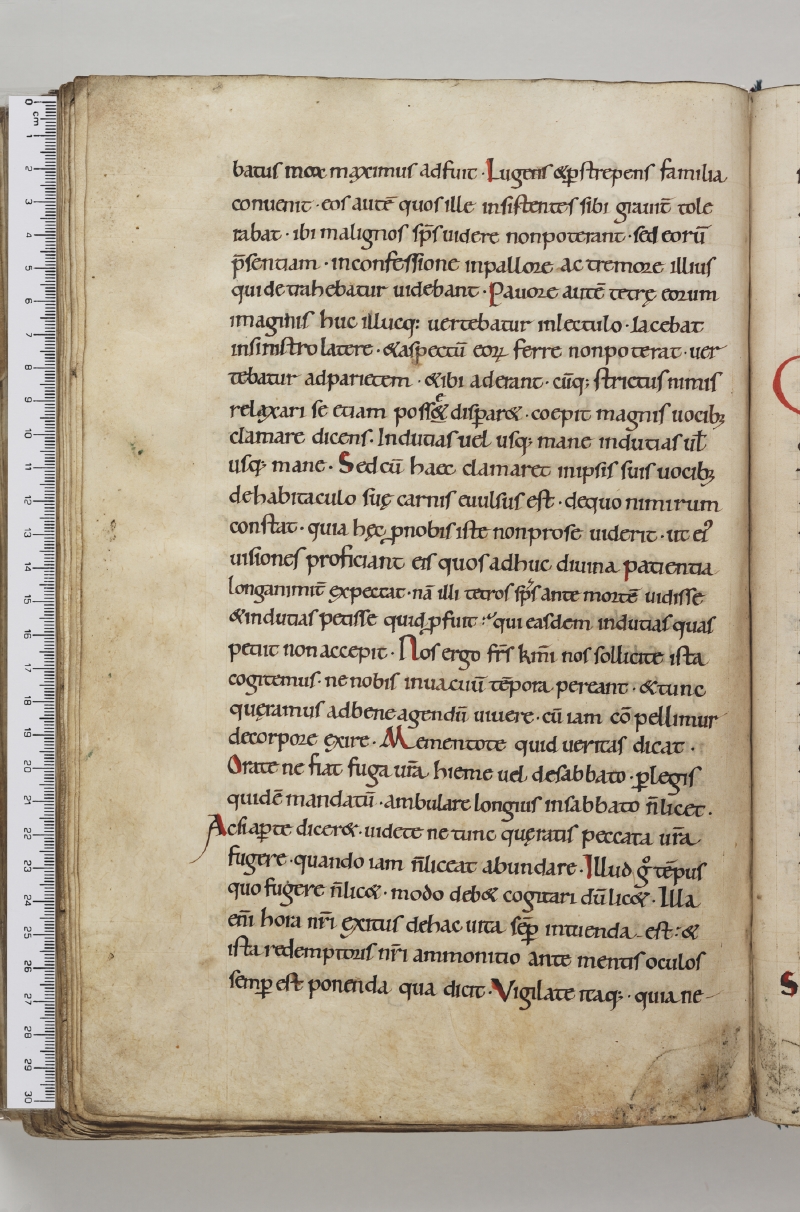 batus mox maximus adfuit · Lugens &p̄strepens familia
conuenit · eos autē quos ille insistentes sibi grauit̄ tole
rabat · ibi malignos sp̄s uidere nonpoterant · sed eorū
p̄sentiam · inconfessione inpallore ac tremore illius
qui detrahebatur uidebant · Pauore autē tetrę eorum
imaginis huc illucq; uertebatur inlectulo · Iacebat
insinistro latere · &aspectū eoꝝ ferre nonpoterat · uer
tebatur adparietem · &ibi aderant · cūq; strictus nimis
relaxari se etiam poss& disperar& · coepit magnis uocib;
clamare dicens · Indutias uel usq; mane indutias ul̄
usq; mane · Sedcū haec clamaret inipsis suis uocib;
dehabitaculo suę carnis euulsus est · dequo nimirum
constat · quia hęc ꝓnobis iste nonprose uiderit · ut ei᾽
uisiones proficiant eis quos adhuc diuina patientia
longanimit̄ expectat · nā illi tetros sp̄s ante mortē uidisse
&indutias petisse quid ꝓfuit · qui easdem indutias quas
petiit non accepit · Nos ergo fr̄s km̄i nos sollicite ista
cogitemus · ne nobis inuacuū tēpora pereant · &tunc
quęramus adbene agendū uiuere · cū iam cōpellimur
decorpore exire · Mementote quid ueritas dicat ·
Orate ne fiat fuga ur̄a hieme uel desabbato · ꝑ legis
quidē mandatū · ambulare longius insabbato n̄ licet ·
Acsi aꝑte dicer& · uidete ne tunc quęratis peccata ur̄a
fugere · quando iam n̄ liceat abundare · Illud gͦ tēpus
quo fugere n̄ lic& · modo deb& cogitari dū lic& · Illa
eni̅ hora nr̄i exitus dehac uita sēꝑ intuenda est : &
ista redemptoris nr̄i ammonitio ante mentis oculos
semꝑ est ponenda qua dicit · Vigilate itaq; · quia ne